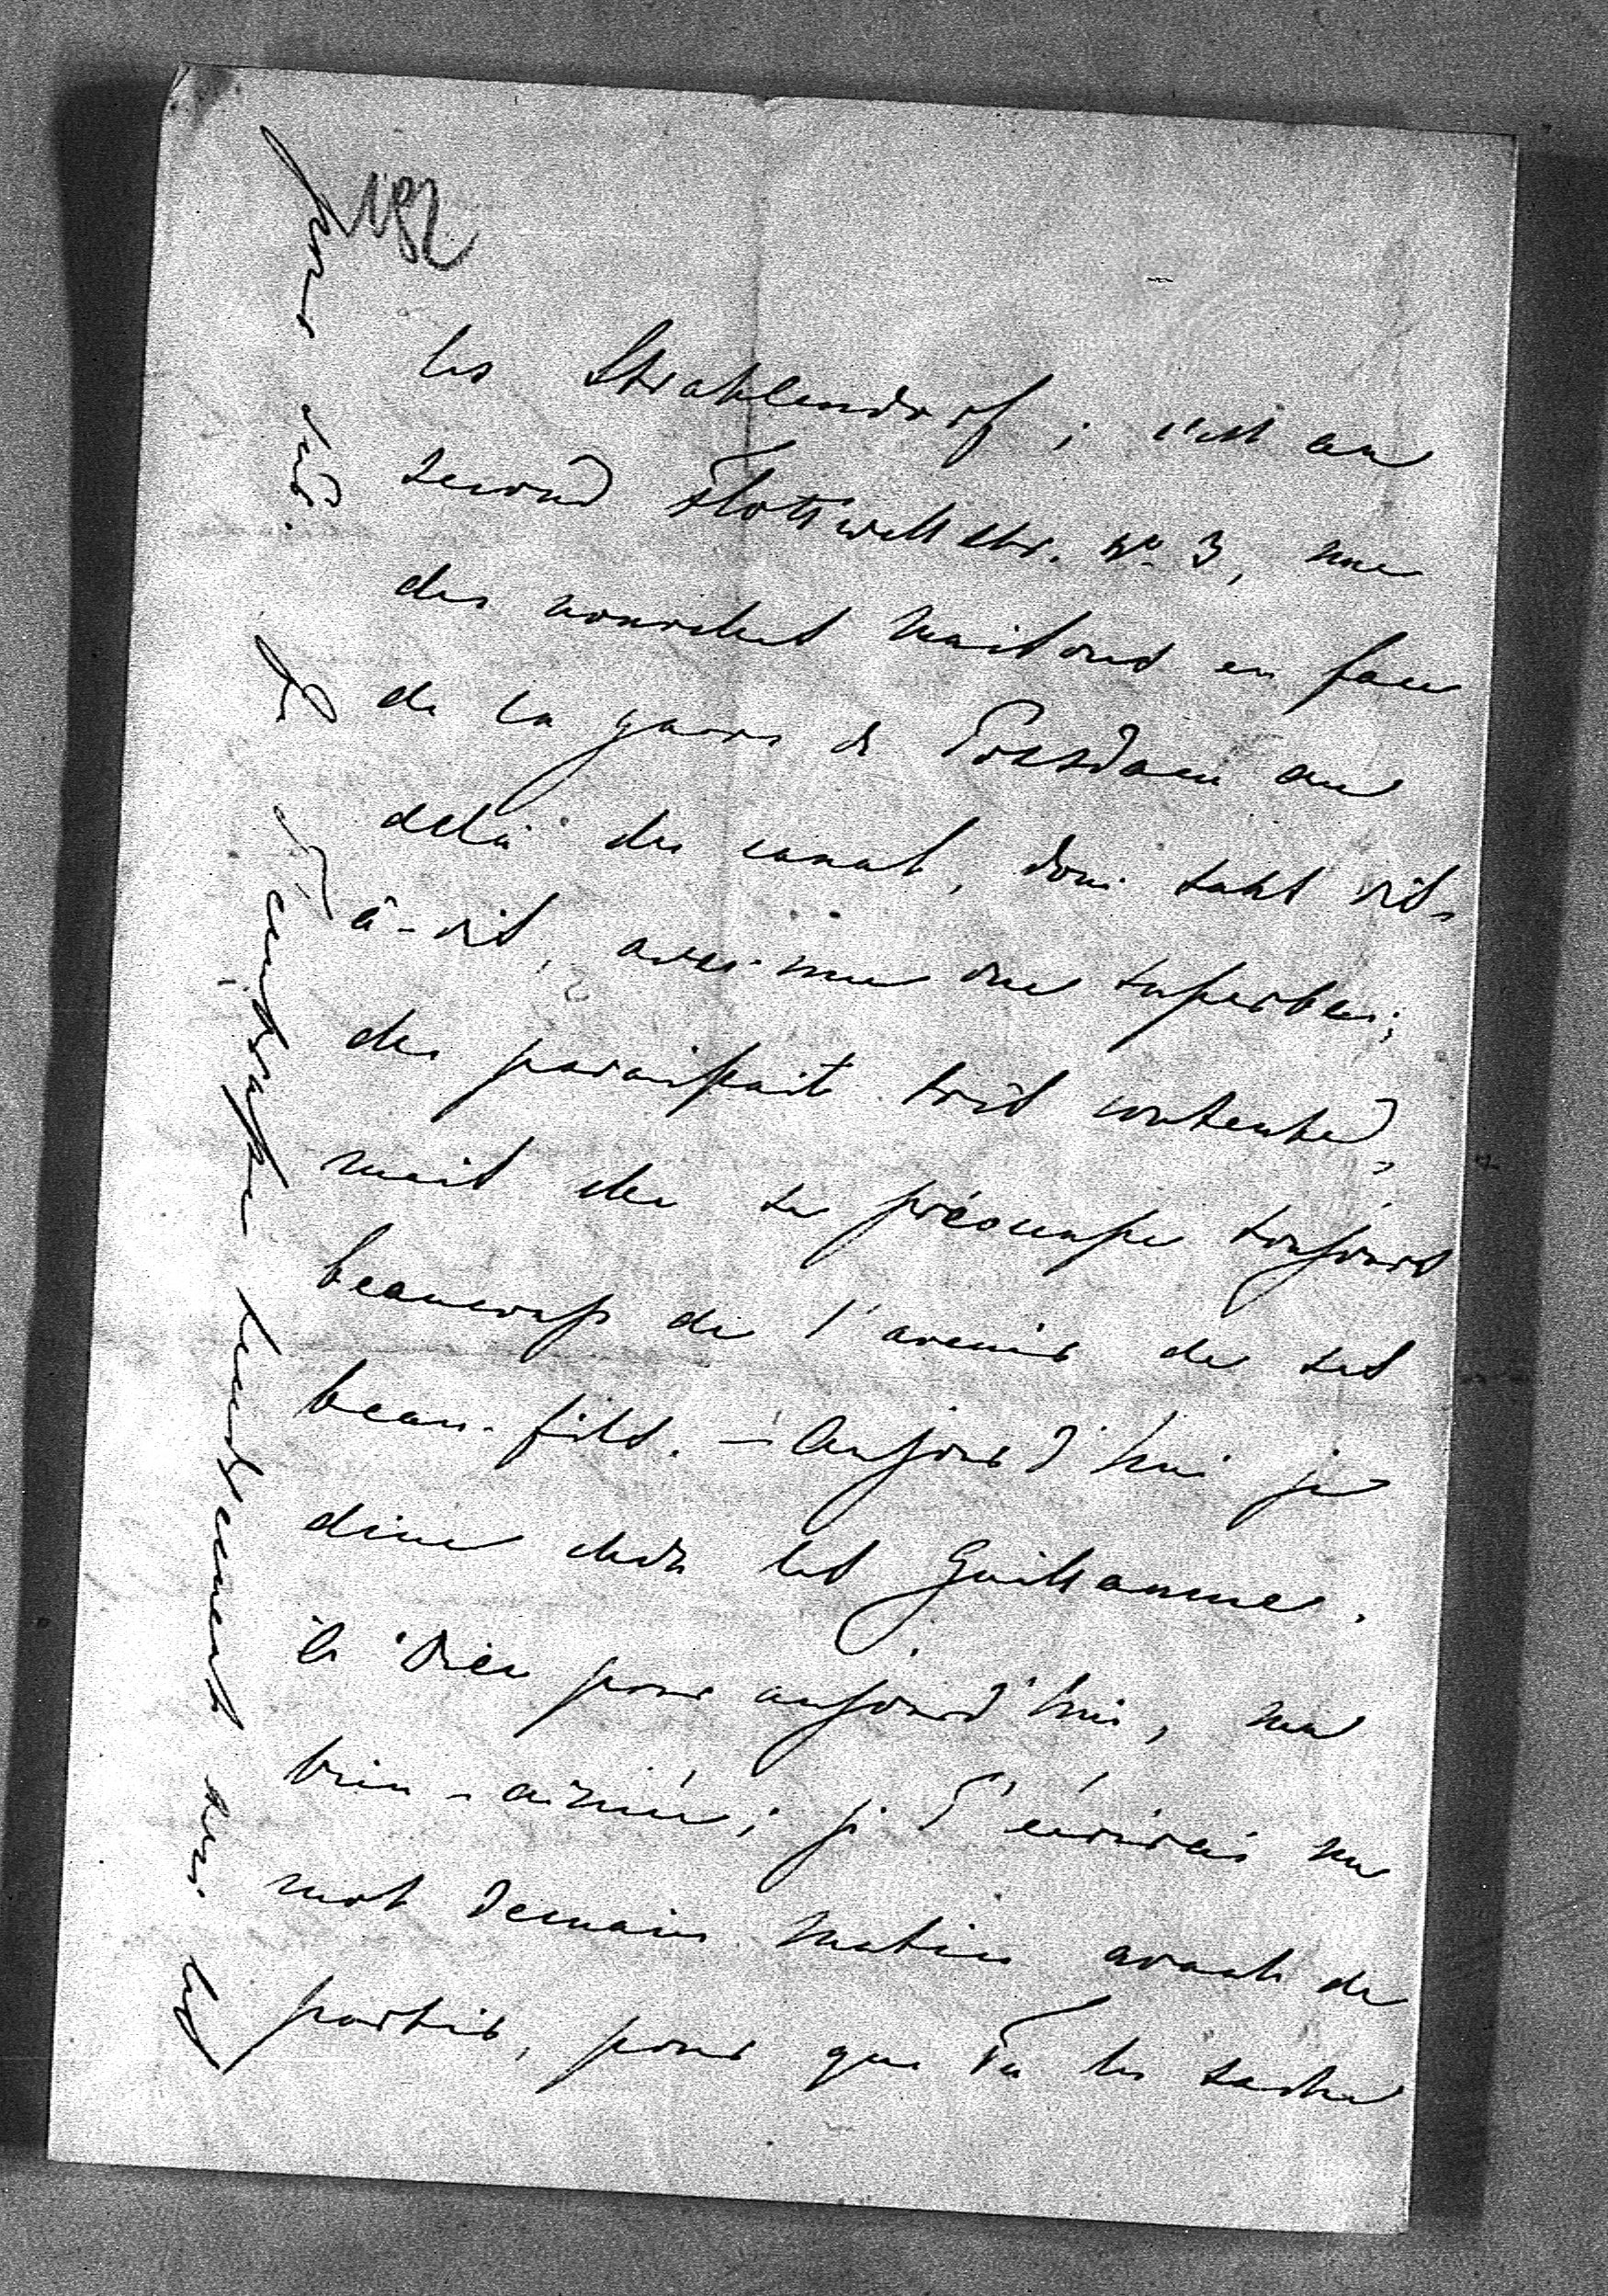 182
les Strahlendorf; c'est au
second Flottwellstr. No 3, une
des nouvelles maisons en face
de la gare de Potsdam au
delà du canal, donc sans vis-
à-vis, avec une vue superbe;
elle paraissait très contente,
mais elle se préoccupe toujours
beaucoup de l'avenir de ses
beau-fils. — Aujourd'hui je
dine chez les Guillaume.
à Dieu pour aujourd'hui, ma
bien-aimée; je T'écrirai un
mot demain matin avant de
partir, pour que Tu le saches
pour sûr. Je
T'embrasse tendrement ainsi que les